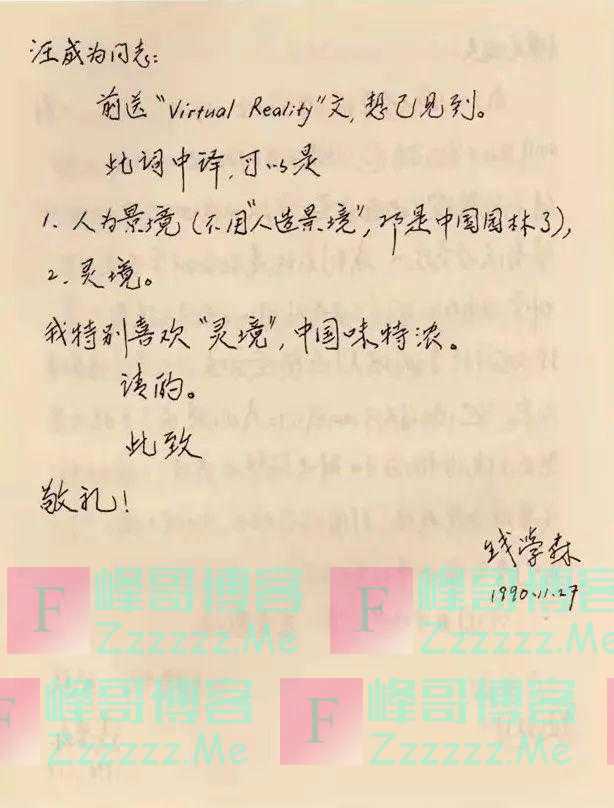 汪成为同志:
前送“Virtual Reality”文,想已见到。
此词中译,可以是
1. 人为景境(不用“人造景境”,那是中国园林了),
2. 灵境。
我特别喜欢“灵境”,中国味特浓。
请酌。
此致
敬礼!
钱学森
1990.11.27
F 峰哥博客 F 峰哥博客
Zzzzzz.Me Zzzzzz.Me
峰哥博客 F 峰哥博客
Zzzzzz.Me Zzzzzz.Me